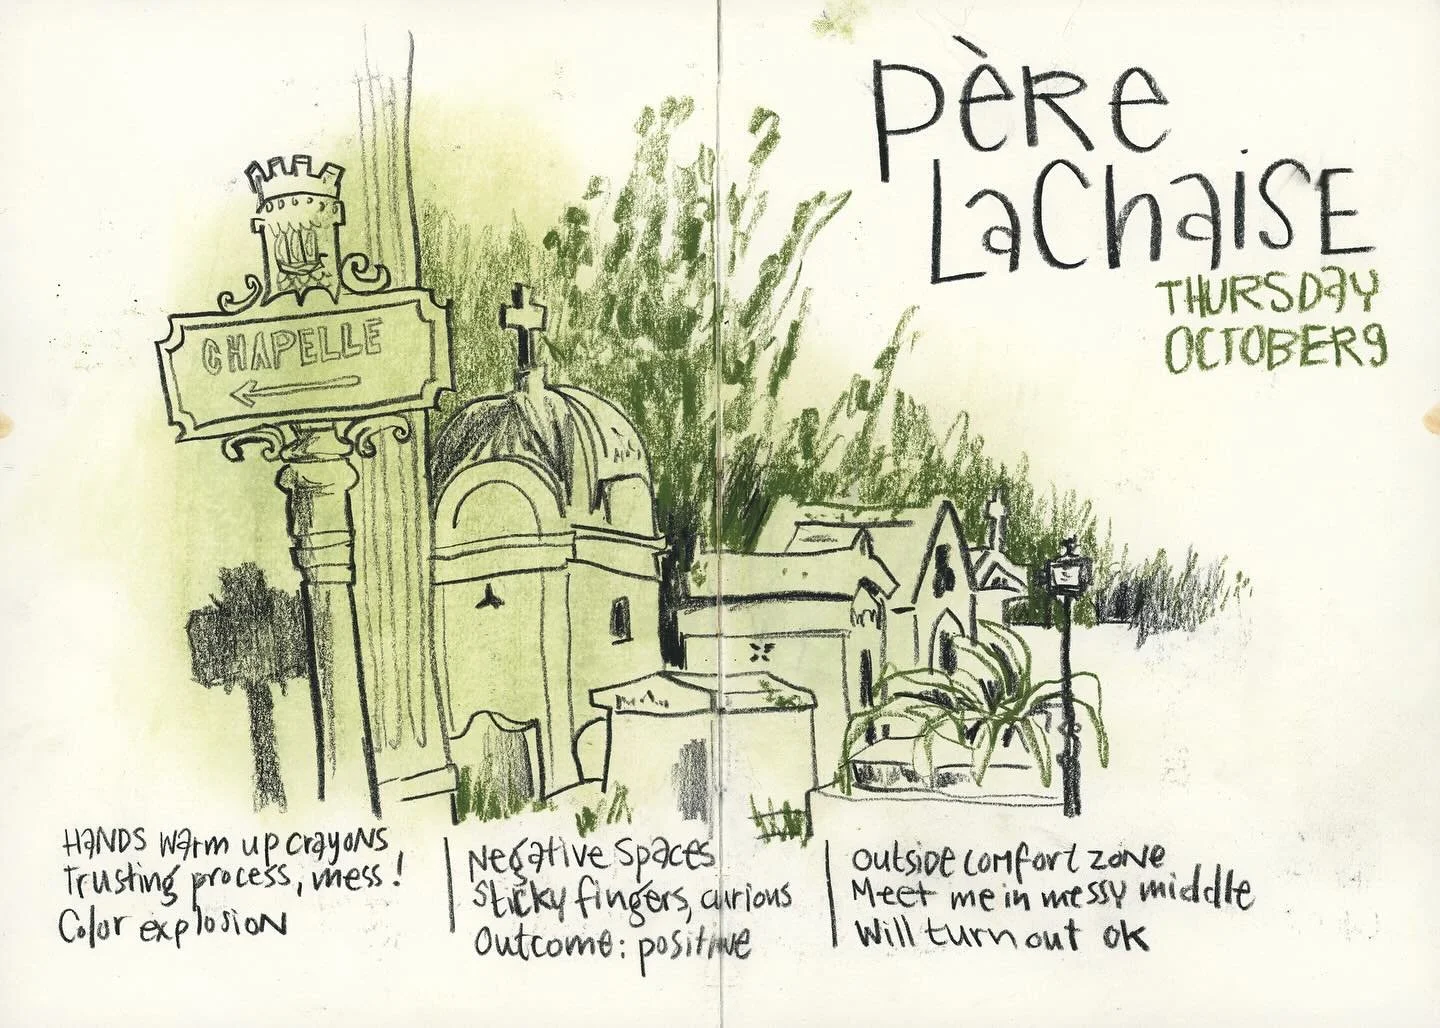 PÈRE
LaChaise
THURSDAY
OCTOBER 9
CHAPELLE
HANDS warm up crayons
Trusting process, mess!
Color explosion
Negative spaces
Sticky fingers, curious
Outcome: positive
Outside comfort zone
Meet me in messy middle
Will turn out ok